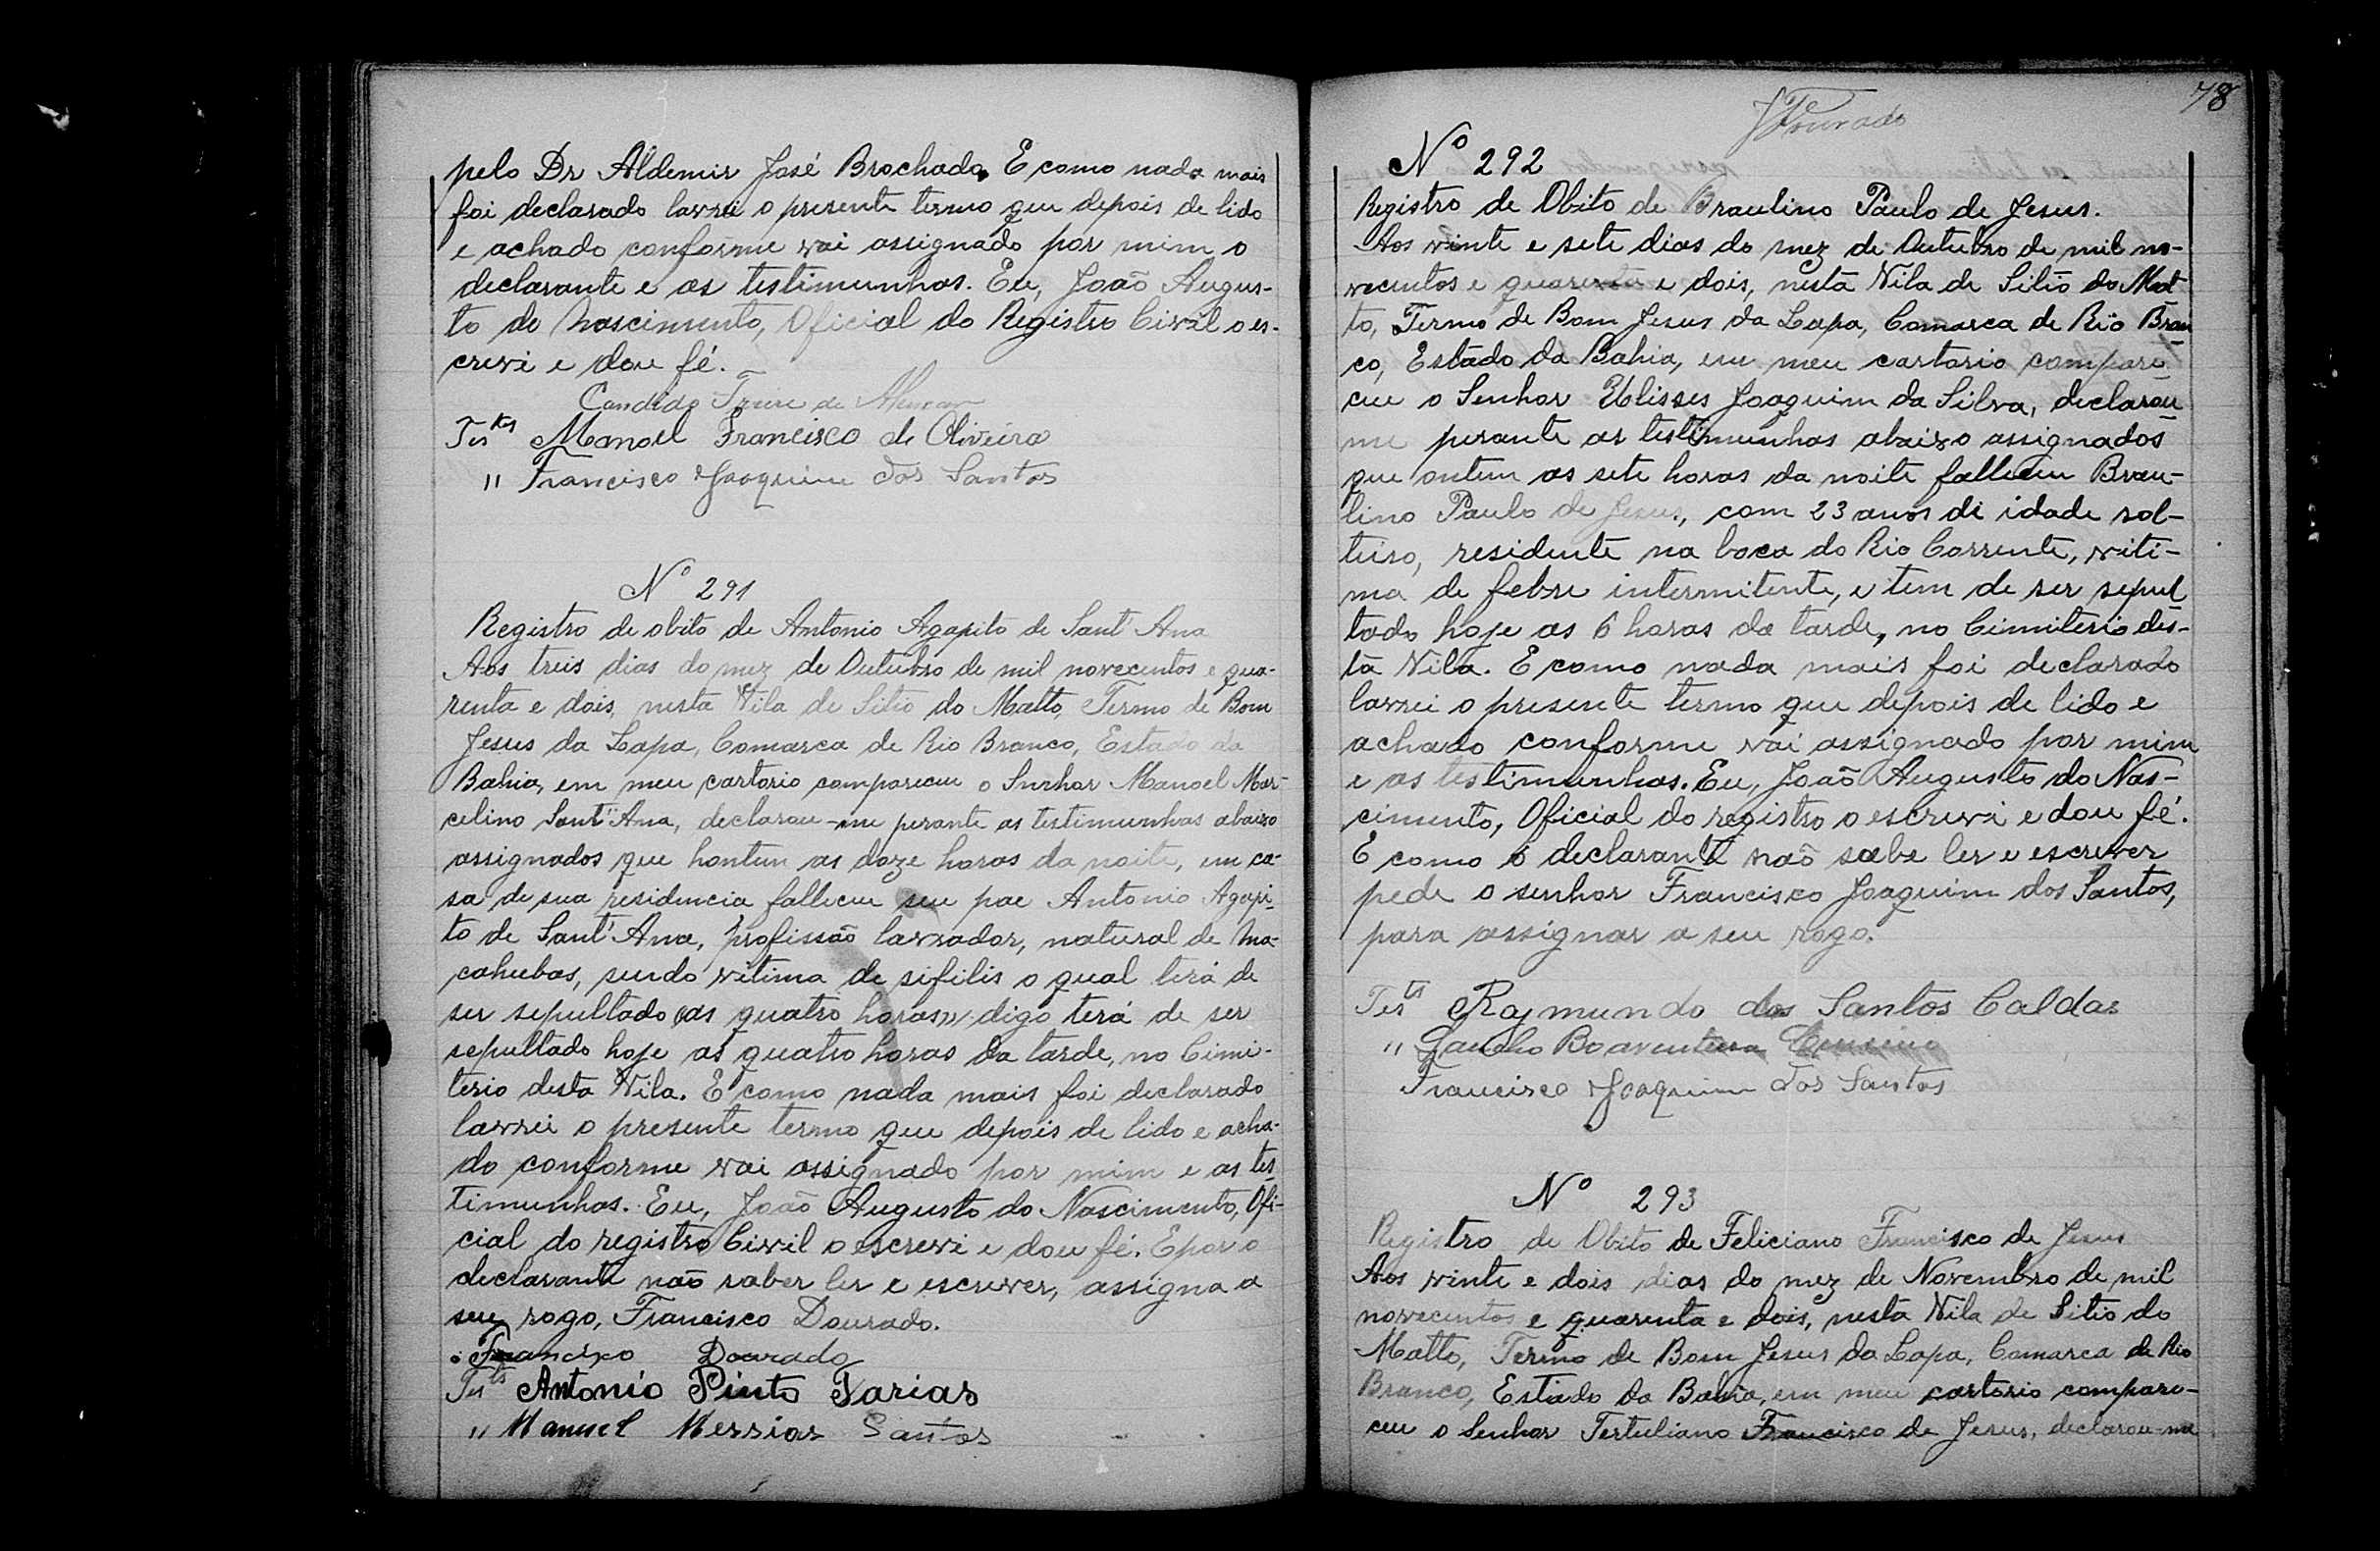 pelo Dr Aldemir José Brochado. E como nada mais
foi declarado lavrei o presente termo que depois de lido
e achado conforme vai assignado por mim o
declarante e as testimunhas. Eu, João Augus-
to do Nascimento, Oficial do Registro Civil o es-
crevi e dou fé.
Candido de
Tes tas Manoel Francisco de Oliveira
" Francisco Joaquim dos Santos
Nº 291
Registro de obito de Antonio Agapito de Sant'Ana
Aos treis dias do mez de Outubro de mil novecentos e qua-
renta e dois, nesta Vila de Sitio do Matto, Termo de Bom
Jesus da Lapa, Comarca de Rio Branco, Estado da
Bahia, em meu cartorio compareceu o Senhor Manoel Mar-
celino Sant'Ana, declarou-me perante as testimunhas abaixo
assignados que hontem as doze horas da noite, em ca-
sa de sua residencia falleceu seu pae Antonio Agapi-
to de Sant'Ana, profissão lavrador, natural de Ma-
cahubas, sendo vitima de sifilis o qual terá de
ser sepultado as quatro horas, digo terá de ser
sepultado hoje as quatro horas da tarde, no Cimi-
terio desta Vila. E como nada mais foi declarado
lavrei o presente termo que depois de lido e acha-
do conforme vai assignado por mim e as tes
timunhas. Eu, João Augusto do Nascimento, Ofi-
cial do registro Civil o escrevi e dou fé. E por o
declarante não saber ler e escrever, assigna a
seu rogo, Francisco Dourado.
Francisco Dourado
Tes tas Antonio Pinto Farias
" Manuel Messias Santos
78
JDourado
Nº 292
Registro de Obito de Braulino Paulo de Jesus.
Aos vinte e sete dias do mez de Outubro de mil no-
vecentos e quarenta e dois, nesta Vila de Sitio do Mat
to, Termo de Bom Jesus da Lapa, Comarca de Rio Bran
co, Estado da Bahia, em meu cartorio compare-
ceu o Senhor Ulisses Joaquim da Silva, declarou
me perante as testimunhas abaixo assignados
que ontem as sete horas da noite falleceu Brau-
lino Paulo de Jesus, com 23 anos de idade sol-
teiro, residente na boca do Rio Corrente, viti-
ma de febre intermitente, e tem de ser sepul
tado hoje as 6 horas da tarde, no Cimiterio des-
ta Vila. E como nada mais foi declarado
lavrei o presente termo que depois de lido e
achado conforme vai assignado por mim
e as testimunhas. Eu, João Augusto do Nas-
cimento, Oficial do registro o escrevi e dou fé.
E como o declarante não sabe ler e escrever
pede o senhor Francisco Joaquim dos Santos,
para assignar a seu rogo.
Tes ts Raymundo dos Santos Caldas
" Boaventura
Francisco Joaquim dos Santos
Nº 293
Registro de Obito de Feliciano Francisco de Jesus
Aos vinte e dois dias do mez de Novembro de mil
novecentos e quarenta e dois, nesta Vila de Sitio do
Matto, Termo de Bom Jesus da Lapa, Comarca de Rio
Branco, Estado da Bahia, em meu cartorio compare-
ceu o Senhor Tertuliano Francisco de Jesus, declarou-me